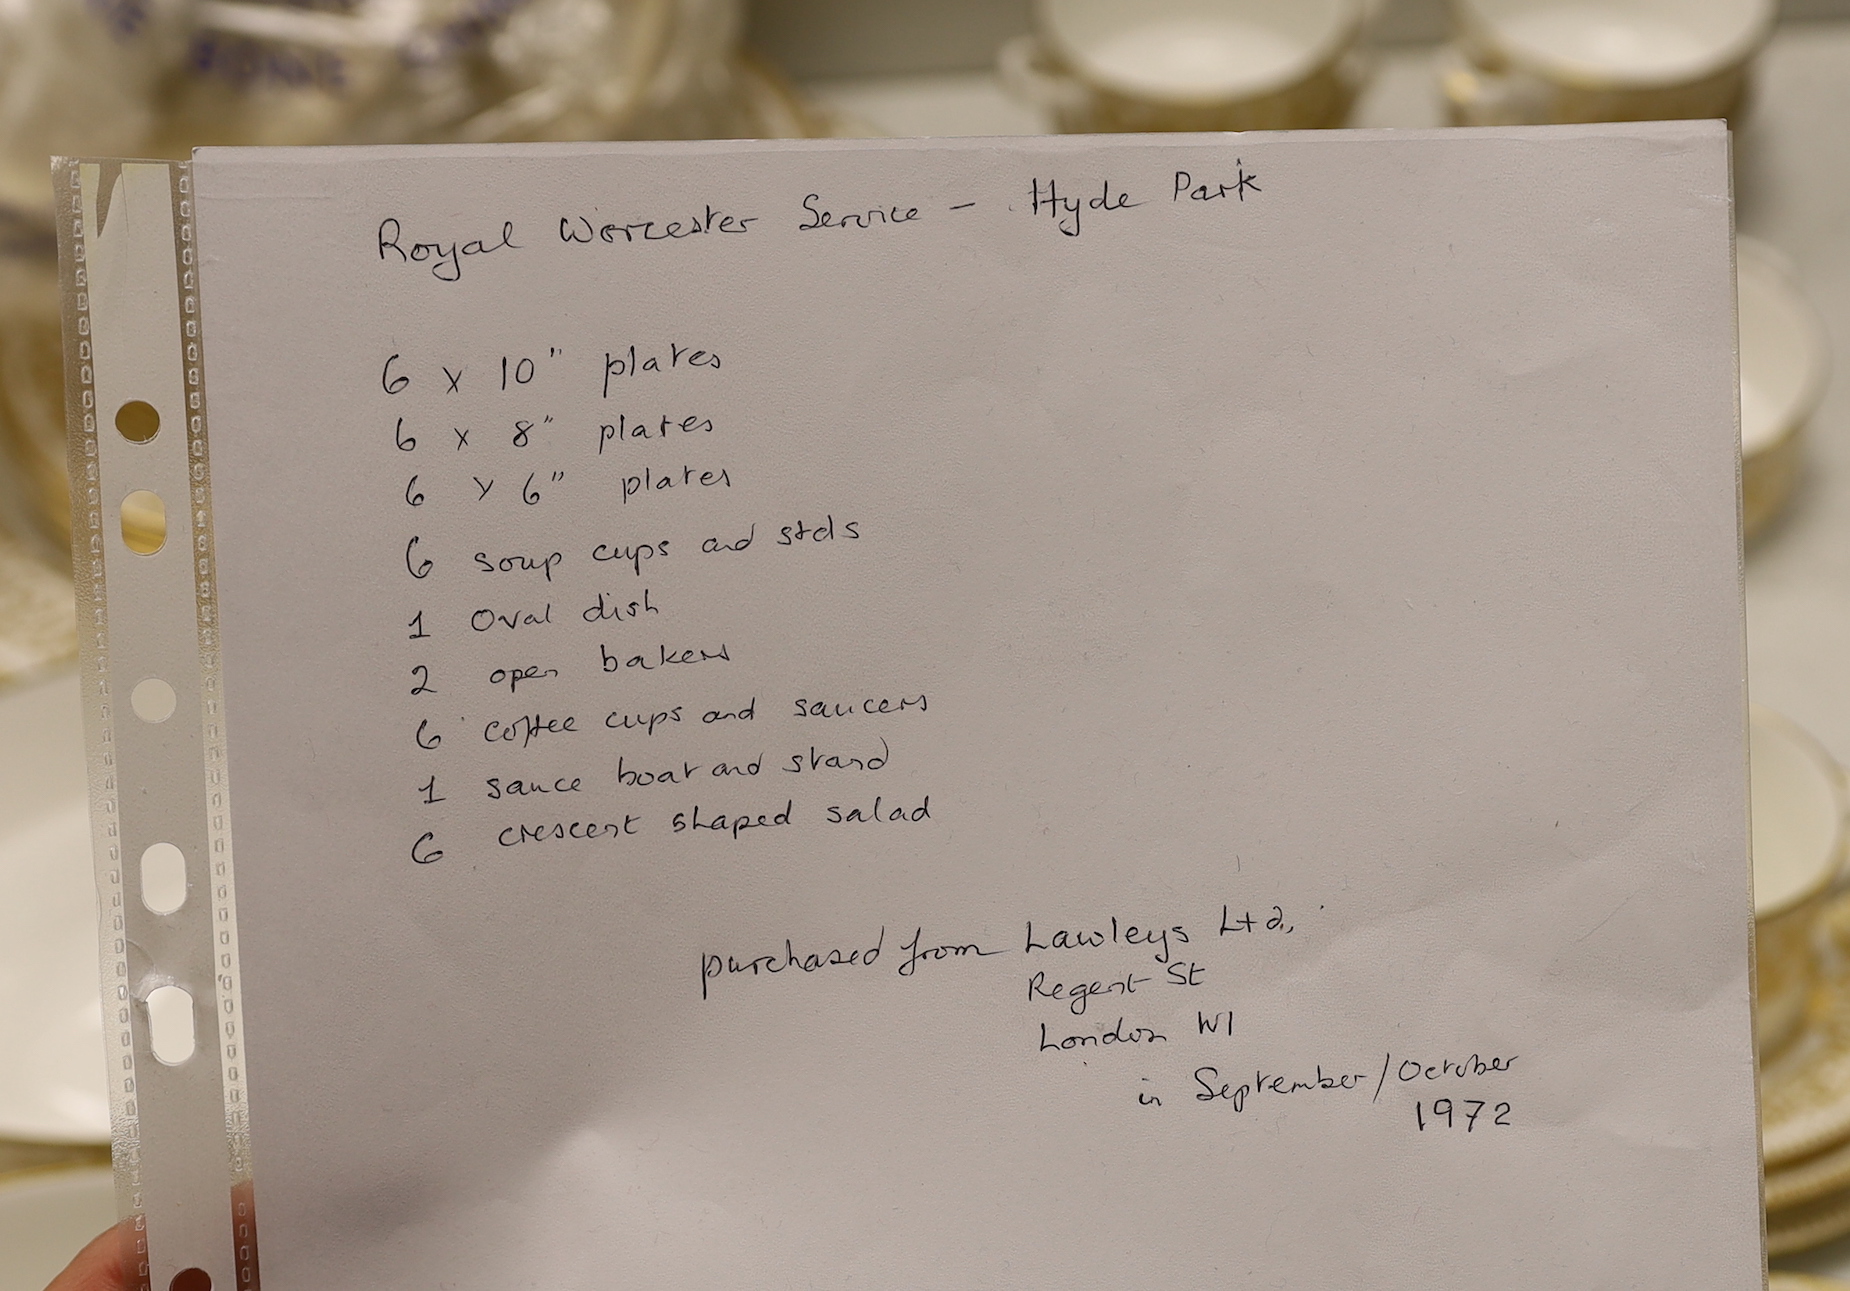 Royal Worcester Service – Hyde Park
6 x 10" plates
6 x 8" plates
6 x 6" plates
6 soup cups and stds
1 Oval dish
2 open bakers
6 coffee cups and saucers
1 sauce boat and stand
6 crescent shaped salad
purchased from Lawleys Ltd.,
Regent St
London W1
in September/October
1972